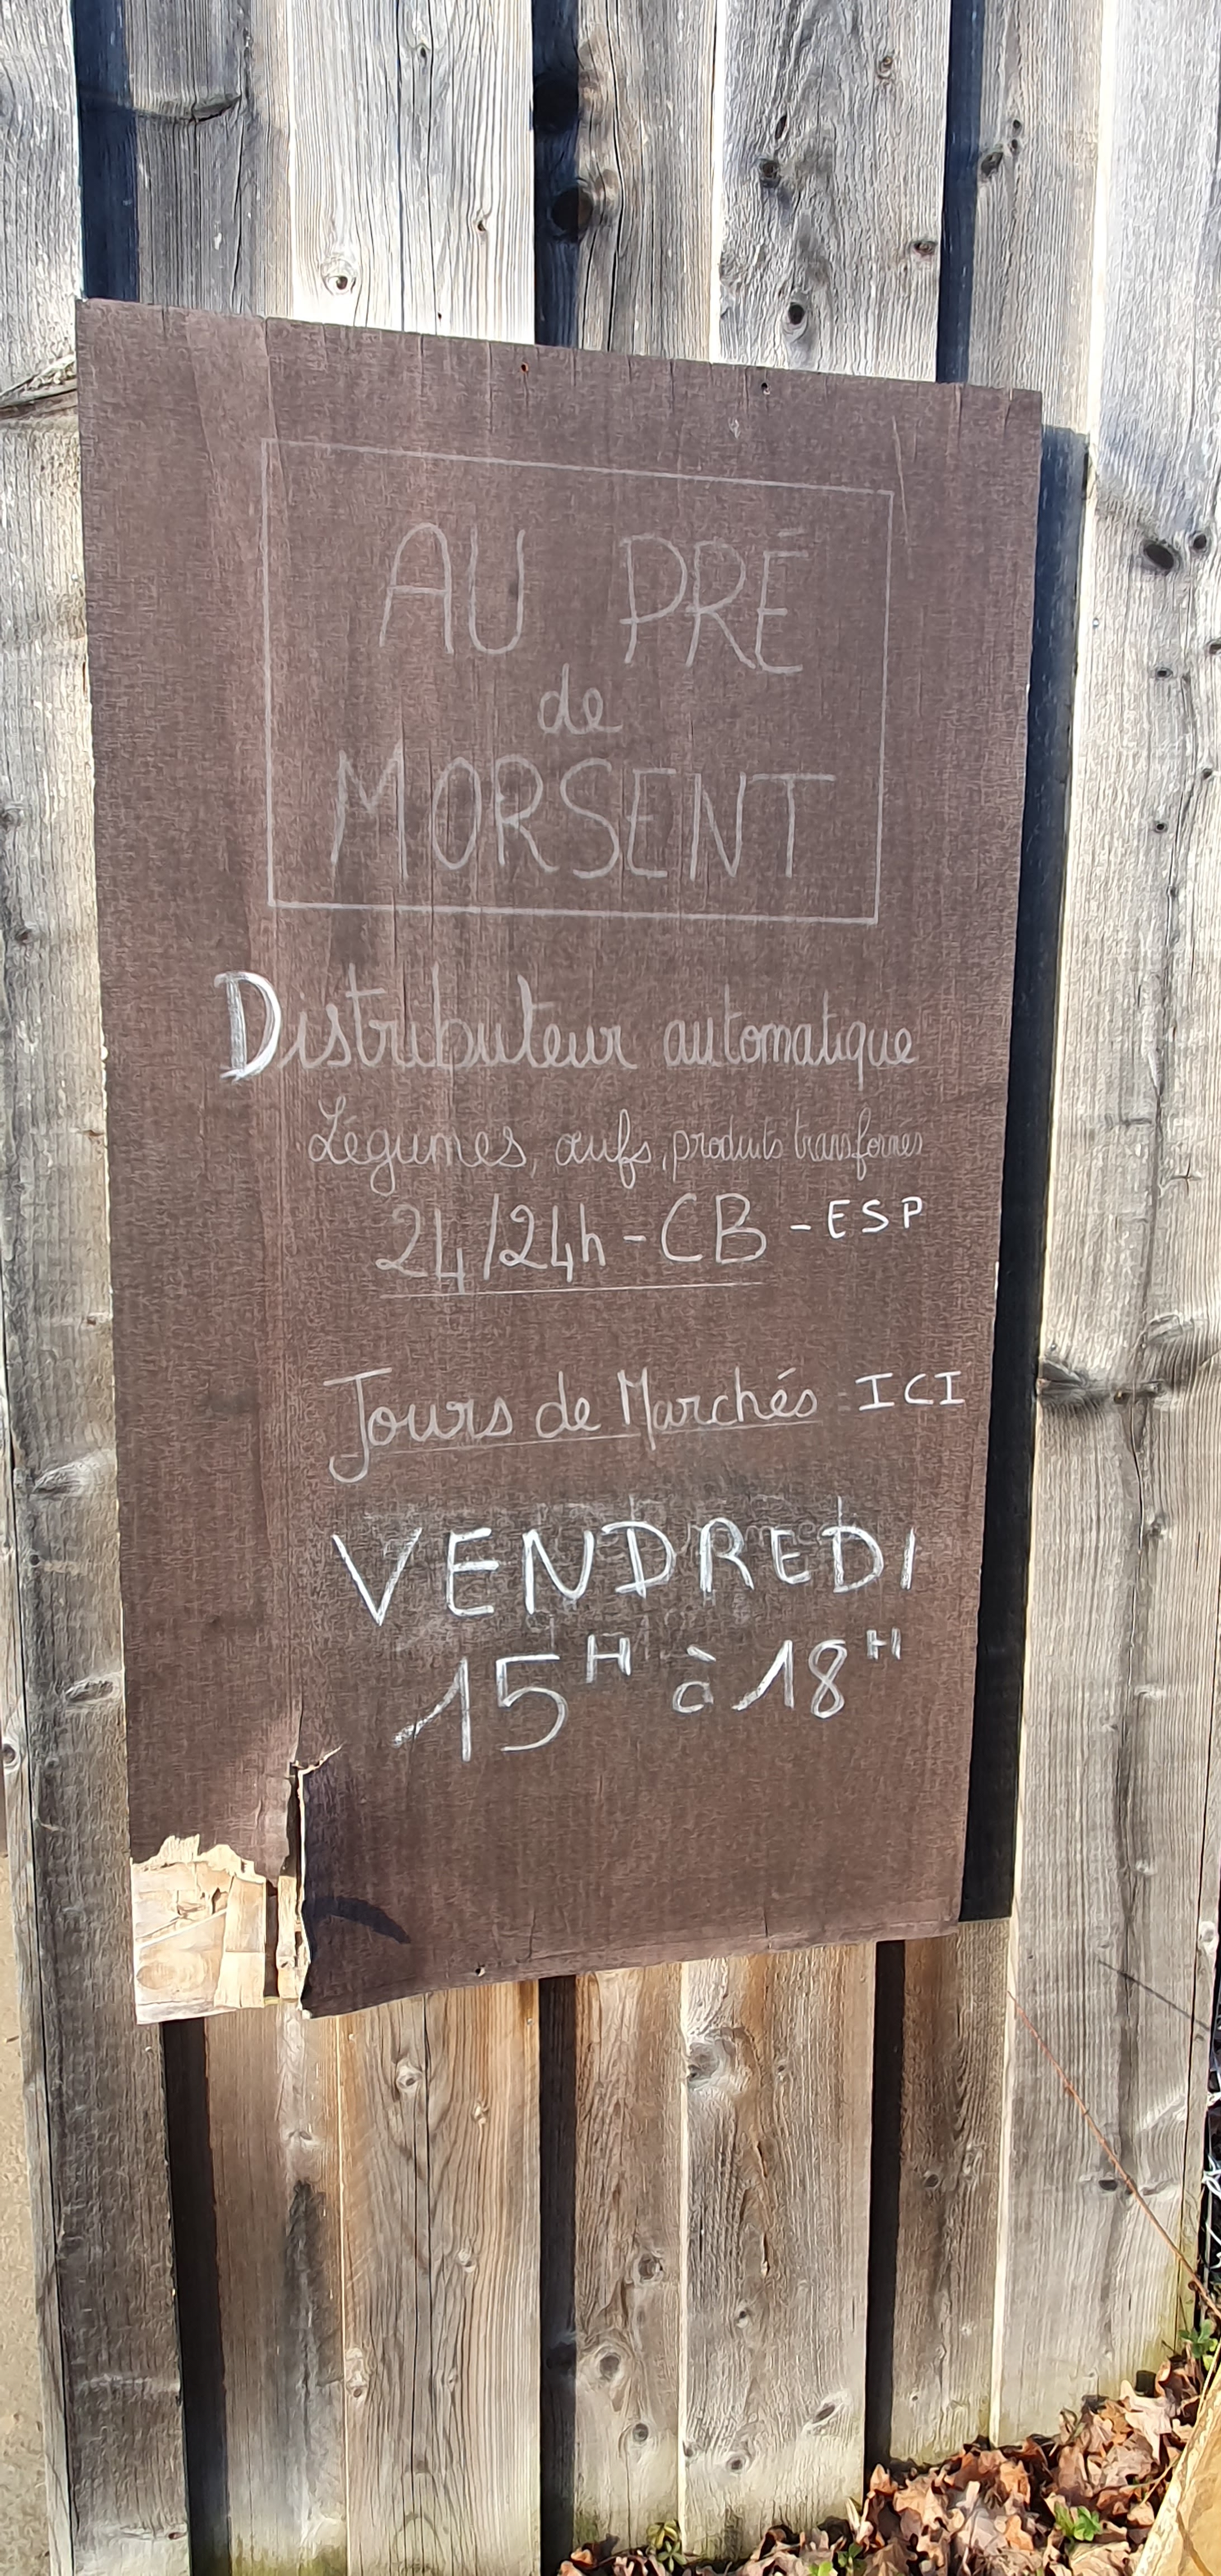 AU PRÉ
de
MORSENT
Distributeur automatique
Légumes, œufs, produits transformés
24/24h - CB - ESP
Jours de Marchés : ICI
VENDREDI
15H à 18H